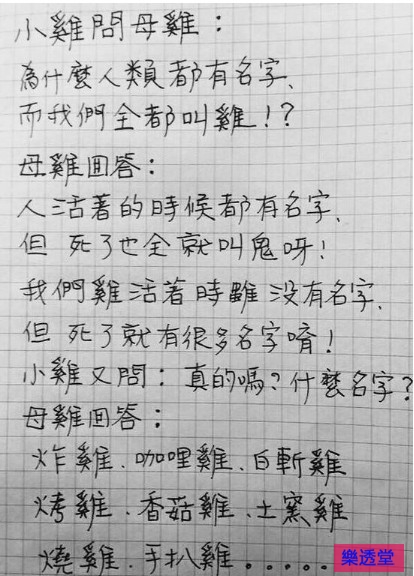 小雞問母雞：
為什麼人類都有名字、
而我們全都叫雞！？
母雞回答：
人活著的時候都有名字、
但 死了也全就叫鬼呀！
我們雞活著時雖沒有名字、
但 死了就有很多名字唷！
小雞又問：真的嗎？什麼名字？
母雞回答：
炸雞、咖哩雞、白斬雞
烤雞、香菇雞、土窯雞
燒雞、手扒雞．．．．．
樂透堂